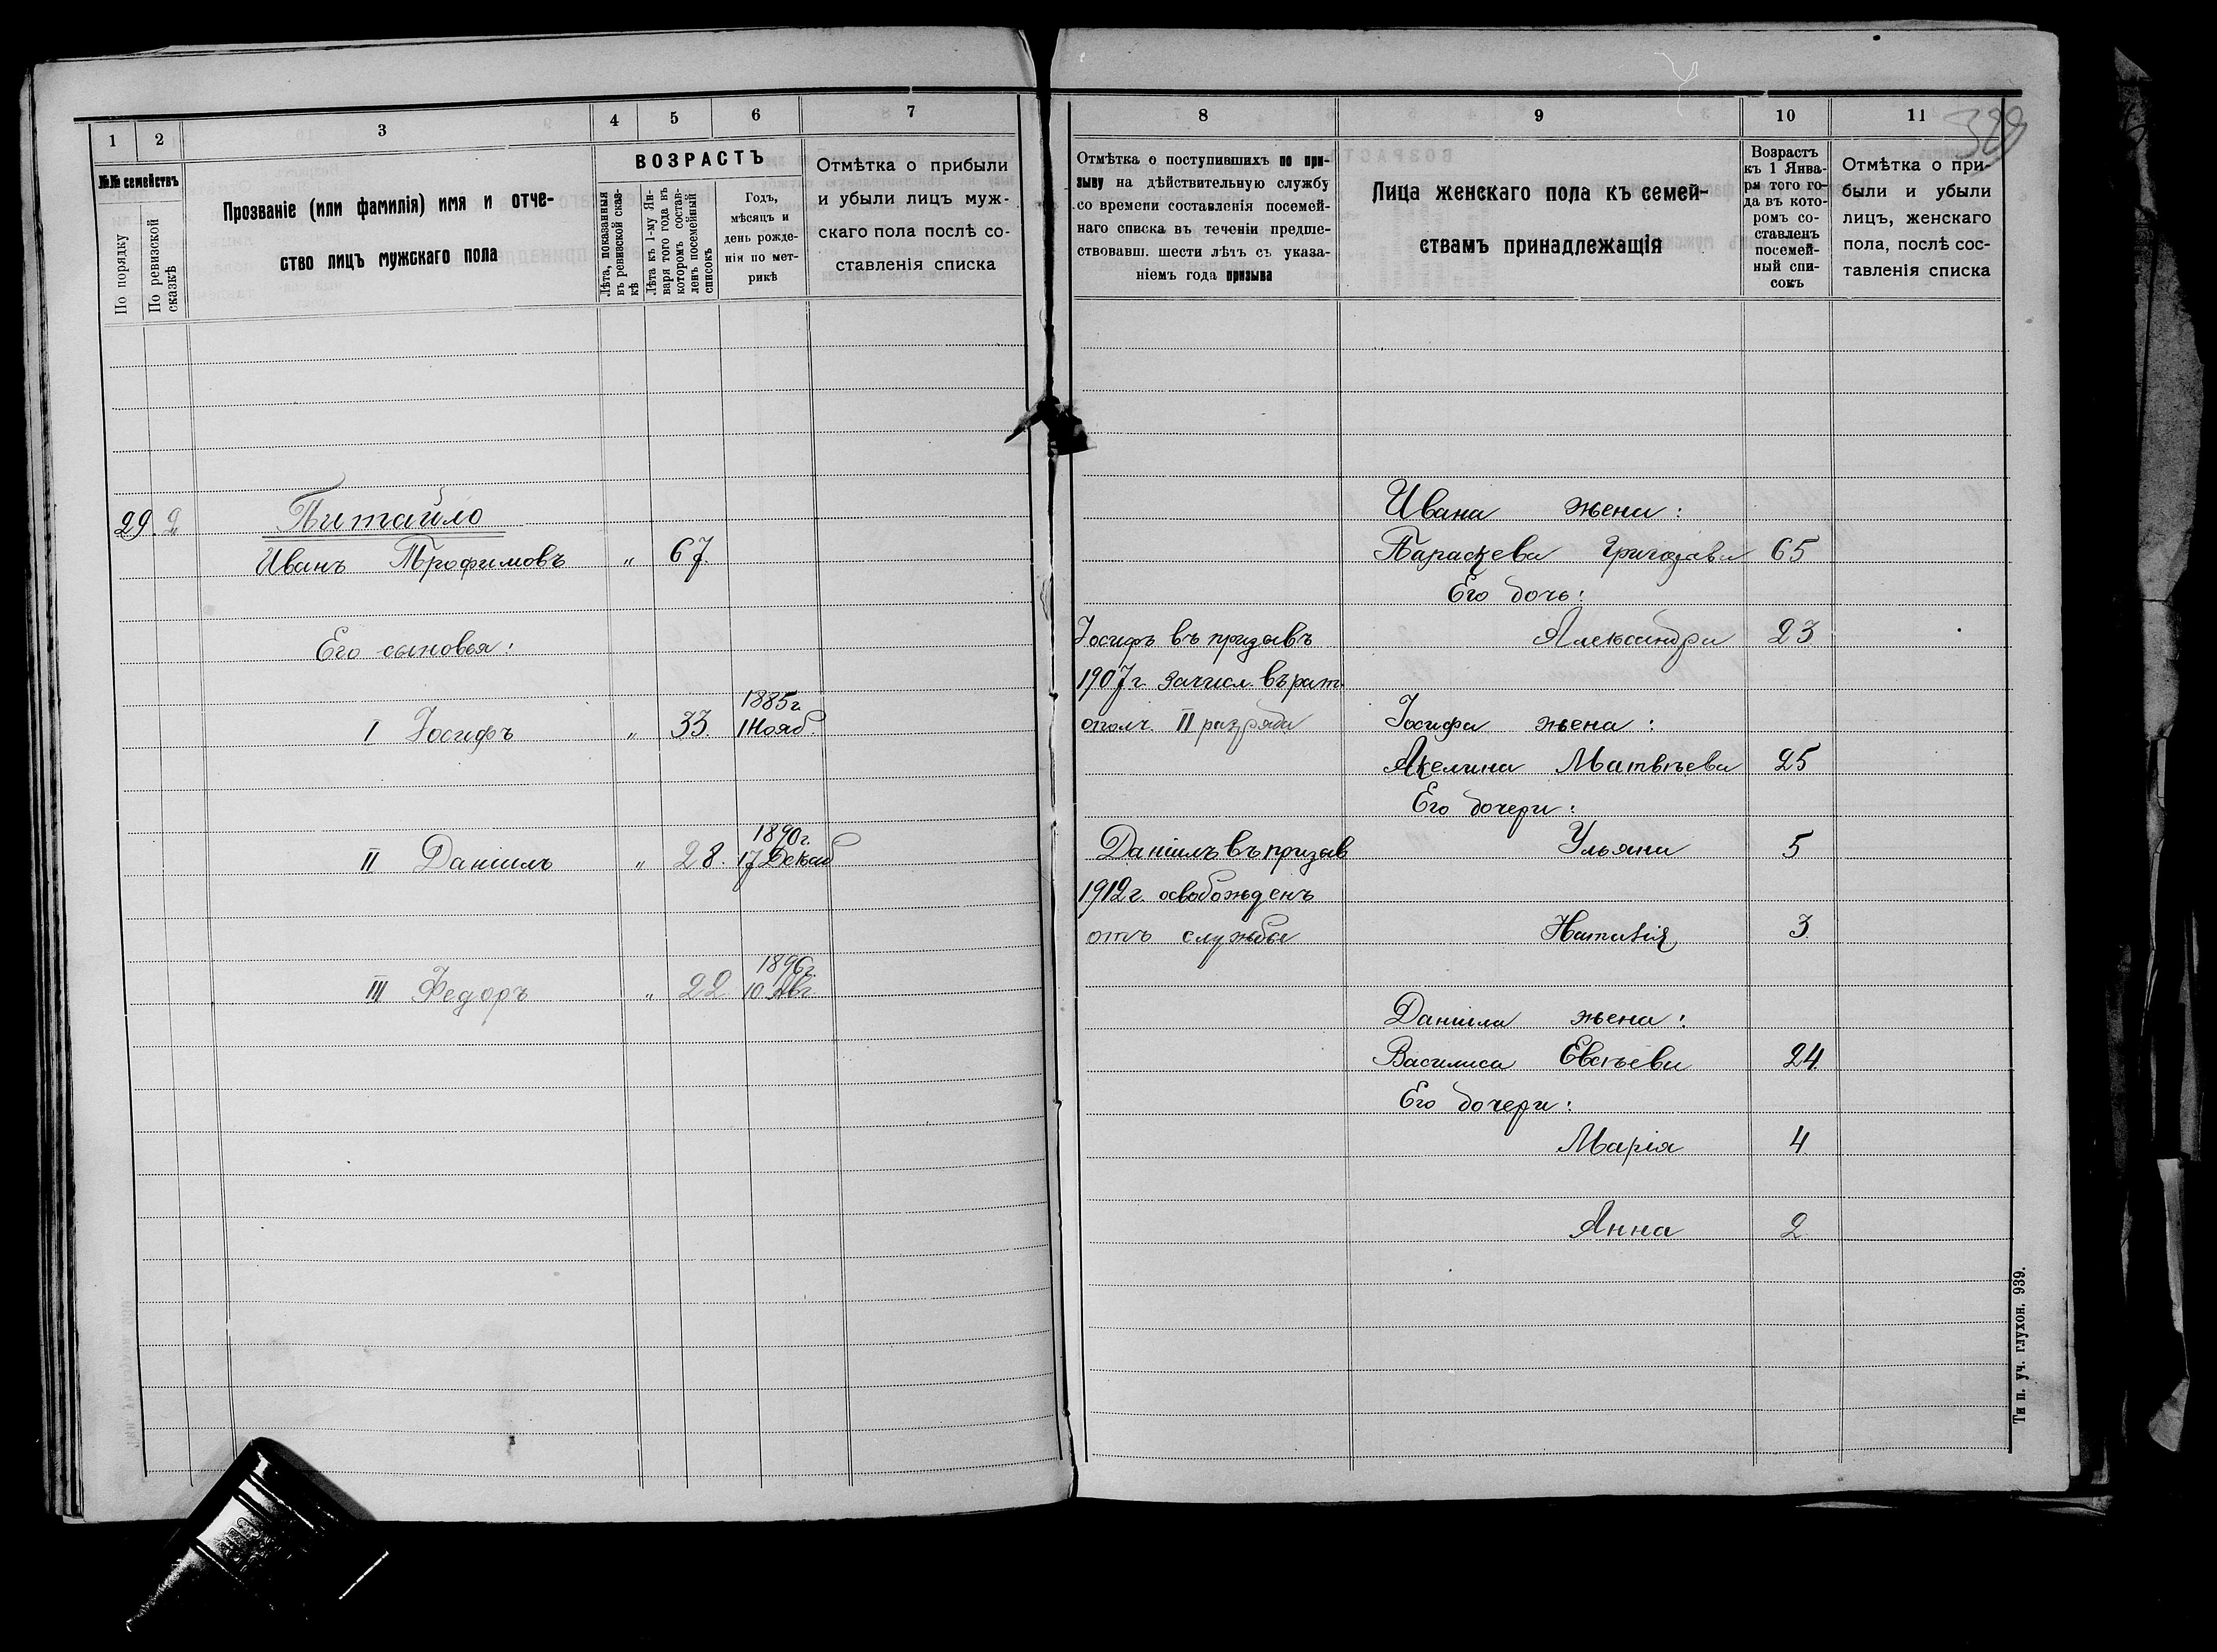 1
2
3
4
5
6
7
№№ семействъ
По порядку
По ревизской сказкѣ
Прозваніе (или фамилія) имя и отче-
ство лицъ мужскаго пола
ВОЗРАСТЪ
Лѣта, показанныя
въ ревизской сказ-
кѣ
Лѣта къ 1-му Ян-
варя того года въ
которомъ состав-
ленъ посемейный
списокъ
Годъ,
мѣсяцъ и
день рожде-
нія по мет-
рикѣ
Отмѣтка о прибыли
и убыли лицъ муж-
скаго пола послѣ со-
ставленія списка
29. 2
Питайло
Иванъ Трофимовъ " 67.
Его сыновья:
1885 г.
I Іосифъ " 33. 1 Нояб.
1890 г.
II Даніилъ " 28. 17 Декаб
1896 г.
III Федоръ " 22 10 Авг.
8
9
10
11
Отмѣтка о поступившихъ по при-
зыву на дѣйствительную службу
со времени составленія посемей-
наго списка въ теченіи предше-
ствовавш. шести лѣтъ съ указа-
ніемъ года призыва
Лица женскаго пола къ семей-
ствамъ принадлежащія
Возрастъ
къ 1 Янва-
ря того го-
да въ кото-
ромъ со-
ставленъ
посемей-
ный спи-
сокъ
Отмѣтка о при-
были и убыли
лицъ, женскаго
пола, послѣ сос-
тавленія списка
Ивана жена:
Параскева 65
Его дочь:
Іосифъ въ призывъ Александра 23
1907 г. зачисл. въ рат.
ополч. II разряда Іосифа жена:
Акелина Матвѣева 25
Его дочери:
Даніилъ въ призыв Ульяна 5
1912 г. освобожденъ
отъ службы Наталія 3
Даніила жена:
Василиса 24.
Его дочери:
Марія 4
Анна 2
Ти п. уч. глухон. 939.